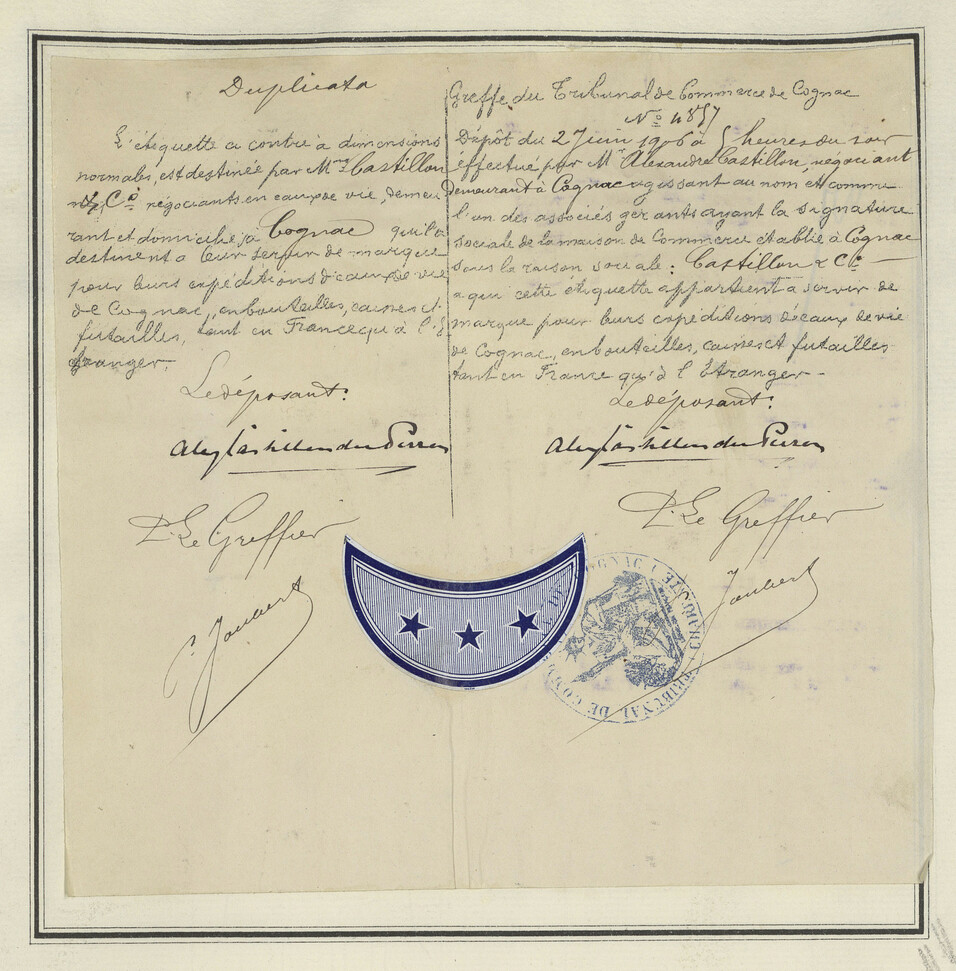 Duplicata
L'étiquette ci contre à dimensions
normales, est destinée par Mrs Castillon
& Cie négociants en eaux de vie, demeu
rant et domiciliés à Cognac qu'ils
destinent à leur servir de marque
pour leurs expéditions d'eaux de vie
de Cognac, en bouteilles, caisses et
futailles, tant en France qu'à l'E
tranger.
Le déposant:
Alex Castillon du Perron
P. Le Greffier
Joubert
Greffe du Tribunal de Commerce de Cognac
No 485
Dépôt du 2 Juin 1906 à heures du soir
effectué par Mr Alexandre Castillon, négociant
demeurant à Cognac agissant au nom et comme
l'un des associés gérants ayant la signature
sociale de la maison de Commerce établie à Cognac
sous la raison sociale: Castillon & Cie —
à qui cette étiquette appartient à servir de
marque pour leurs expéditions d'eaux de vie
de Cognac, en bouteilles, caisses et futailles
tant en France qu'à l'Etranger -
Le déposant:
Alex Castillon du Perron
P. Le Greffier
Joubert
TRIBUNAL DE COGNAC CHARENTE